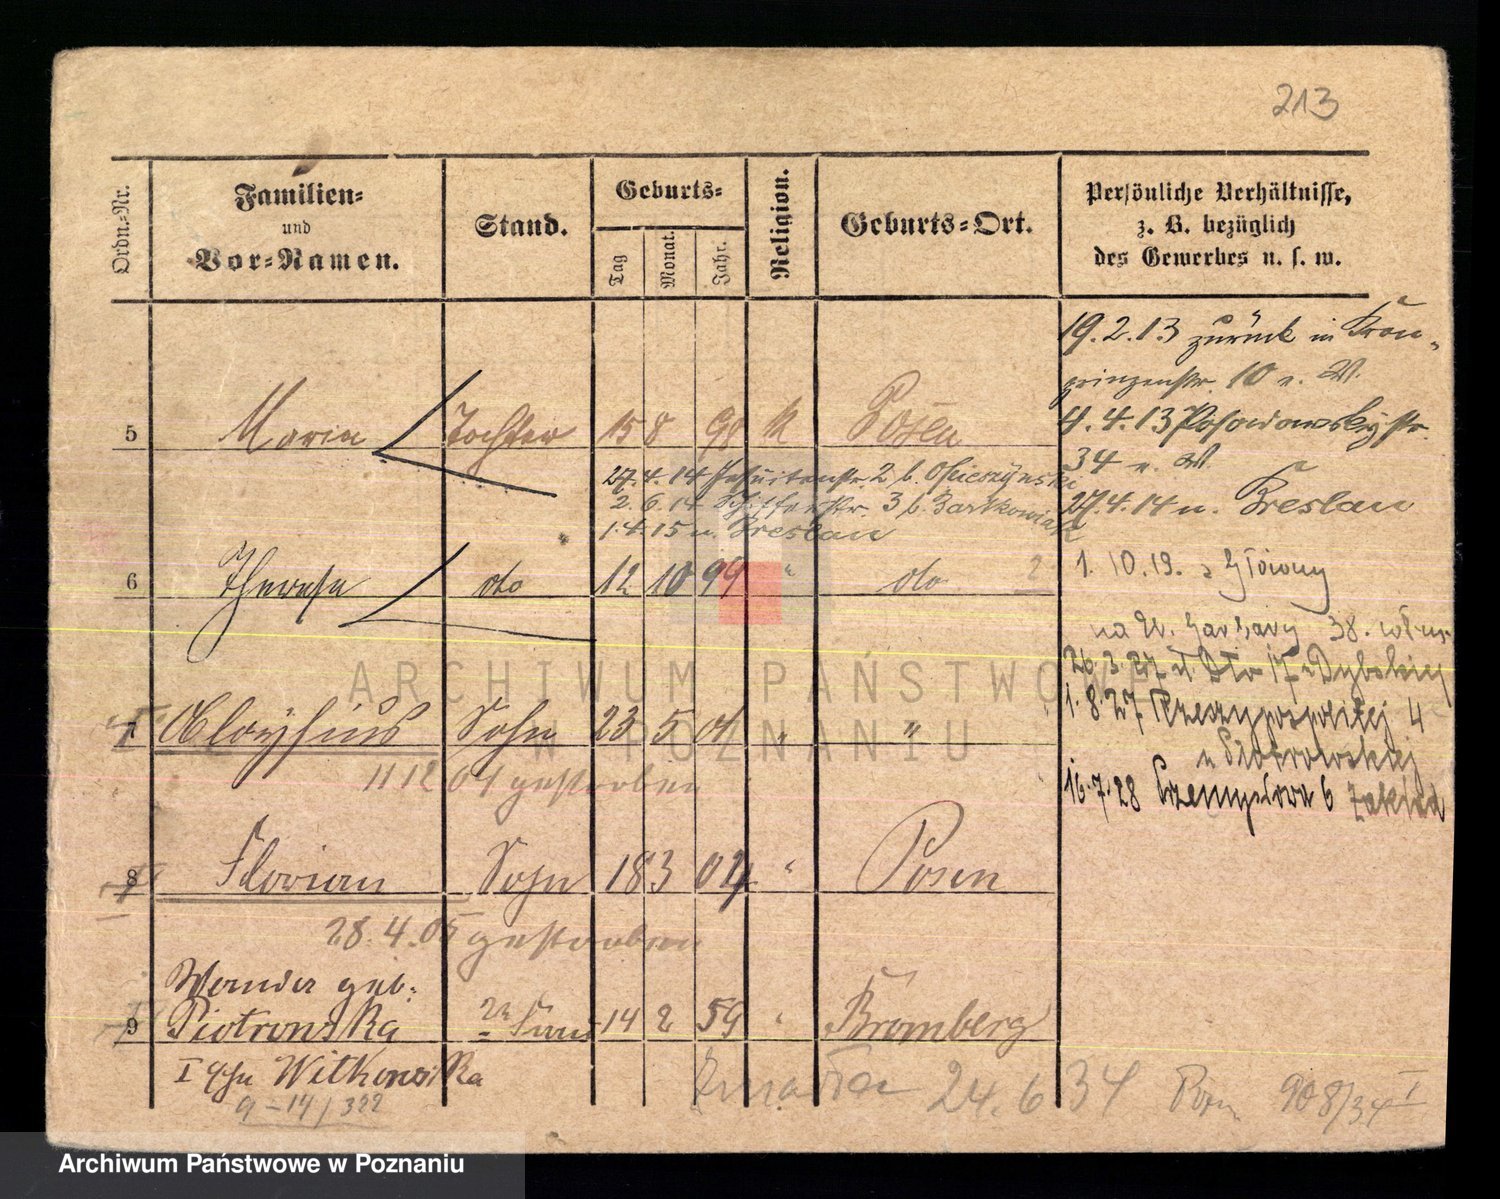 213
Ordn.=Nr.
Familien=
und
Vor=Namen.
Stand.
Geburts=
Tag
Monat.
Jahr.
Religion.
Geburts=Ort.
Persönliche Verhältnisse,
z. B. bezüglich
des Gewerbes u. s. w.
19.2.13 zurück in Kron-
prinzenstr. 10 n. W.
5 Maria Tochter 15 8 98 k Posen
4.4.13 Posadowskystr.
34 n. W.
27.4.14 Jesuitenstr. 2 b.
2.6.14 3 b. Bartkowiak
1.4.15 n. Breslau
27.4.14 n. Breslau
6 Therese do 12 10 99 " do 2
1.10.19. z Główny
na W. Garbary 38.
26.3.27 17
7 Aloysius Sohn 23 5 01 " "
11 12 04 gestorben
1.8.27 Rzeczypospolitej 4
u Piotrowskiej
16.7.28 Przemysłowa 6 Zakład
8 Florian Sohn 18 3 04 " Posen
28.4.05 gestorben
Wanda geb:
9 Piotrowska 2te Frau 14 2 59 " Bromberg
I Witkowska
9-14/322
Zmarła 24.6 34 908/34 I
ARCHIWUM PAŃSTWOWE
W POZNANIU
Archiwum Państwowe w Poznaniu